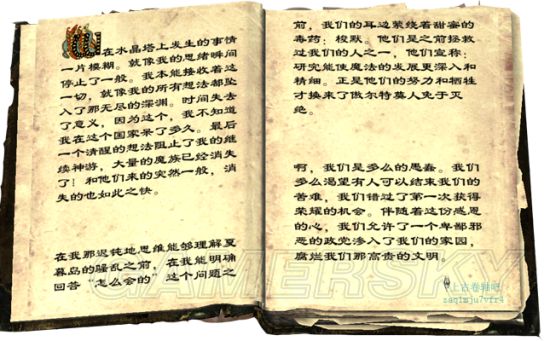 在水晶塔上发生的事情
一片模糊。就像我的思绪瞬间
停止了一般。我本能接收着这
一切，就像我的所有想法都坠
入了那无尽的深渊。时间失去
了意义，因为这个，我不知道
我在这个国家呆了多久。最后
一个清醒的想法阻止了我的继
续神游，大量的魔族已经消失
了！和他们来的突然一般，消
失的也如此之快。
在我那迟钝地思维能够理解夏
暮岛的骚乱之前，在我能明确
回答“怎么会的”这个问题之
前，我们的耳边萦绕着甜蜜的
毒药：梭默。他们是之前拯救
过我们的人之一，他们宣称：
研究能使魔法的发展更深入和
精细。正是他们的努力和牺牲
才换来了傲尔特莫人免于灭
绝。
啊，我们是多么的愚蠢。我们
多么渴望有人可以结束我们的
苦难，我们错过了第一次获得
荣耀的机会。伴随着这份感恩
的心，我们允许了一个卑鄙邪
恶的政党渗入了我们的家园，
腐烂我们那高贵的文明。
GAMERSKY
上古卷轴吧
zaq1mju7vfr4